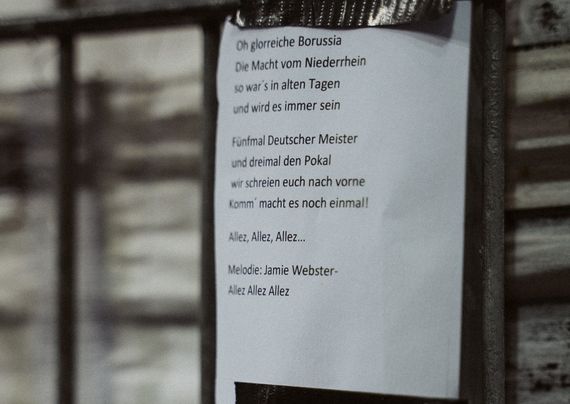 Oh glorreiche Borussia
Die Macht vom Niederrhein
so war´s in alten Tagen
und wird es immer sein
Fünfmal Deutscher Meister
und dreimal den Pokal
wir schreien euch nach vorne
Komm´ macht es noch einmal!
Allez, Allez, Allez...
Melodie: Jamie Webster-
Allez Allez Allez